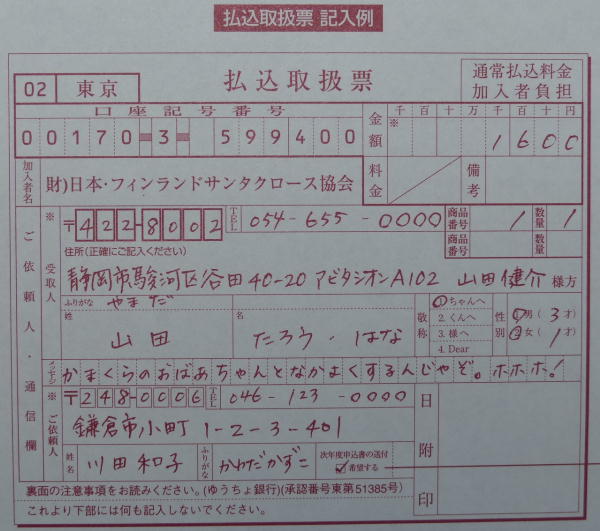 払込取扱票 記入例
02 東京 払込取扱票 通常払込料金 加入者負担
口座記号番号 金額 千 百 十 万 千 百 十 円
00170-3-599400 ※ 1600
加入者名 財)日本・フィンランドサンタクロース協会 料金 備考
※ 〒422-8002 TEL 054-655-0000 商品番号 1 数量 1
住所(正確にご記入ください) 商品番号 数量
静岡市駿河区谷田40-20 アビタシオンA102 山田健介 様方
ご依頼人・通信欄
受取人
ふりがな やまだ
姓 山田 名 たろう・はな
敬称 1.ちゃんへ 2.くんへ 3.様へ 4.Dear
性別 1男(3才) 2女(1才)
メッセージ かまくらのおばあちゃんとなかよくするんじゃぞ。ホホホ!
※ 〒248-0006 TEL 046-123-0000 日附印
ご依頼人 鎌倉市小町1-2-3-401
姓名 川田和子 ふりがな かわだかずこ 次年度申込書の送付 ✓希望する
裏面の注意事項をお読みください。(ゆうちょ銀行)(承認番号東第51385号)
これより下部には何も記入しないでください。